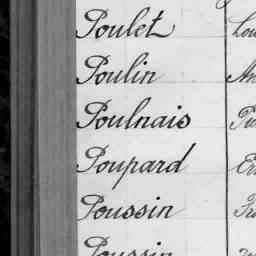 Poulet
Poulin
Poulnais
Poupard
Poussin
Poussin